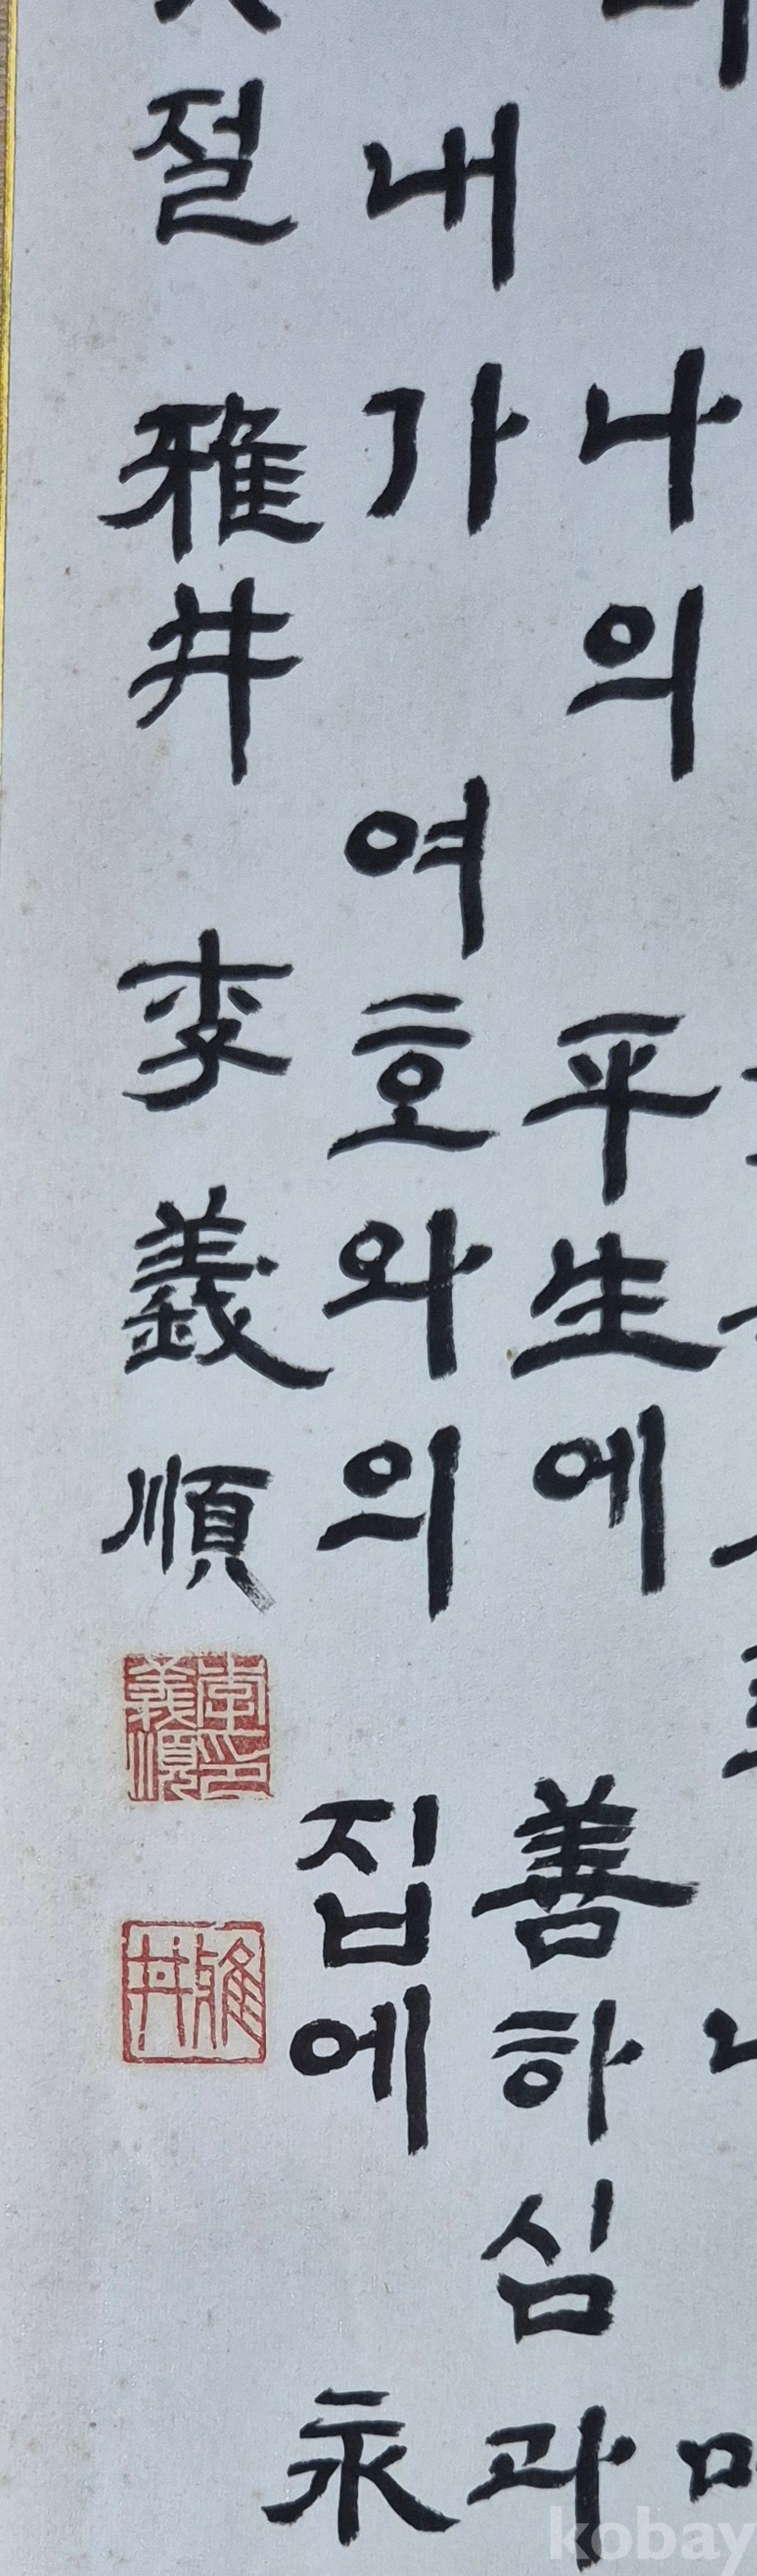 나의 平生에 善하심과
내가 여호와의 집에 永
절 雅井 李義順
李義順印
雅井
kobay